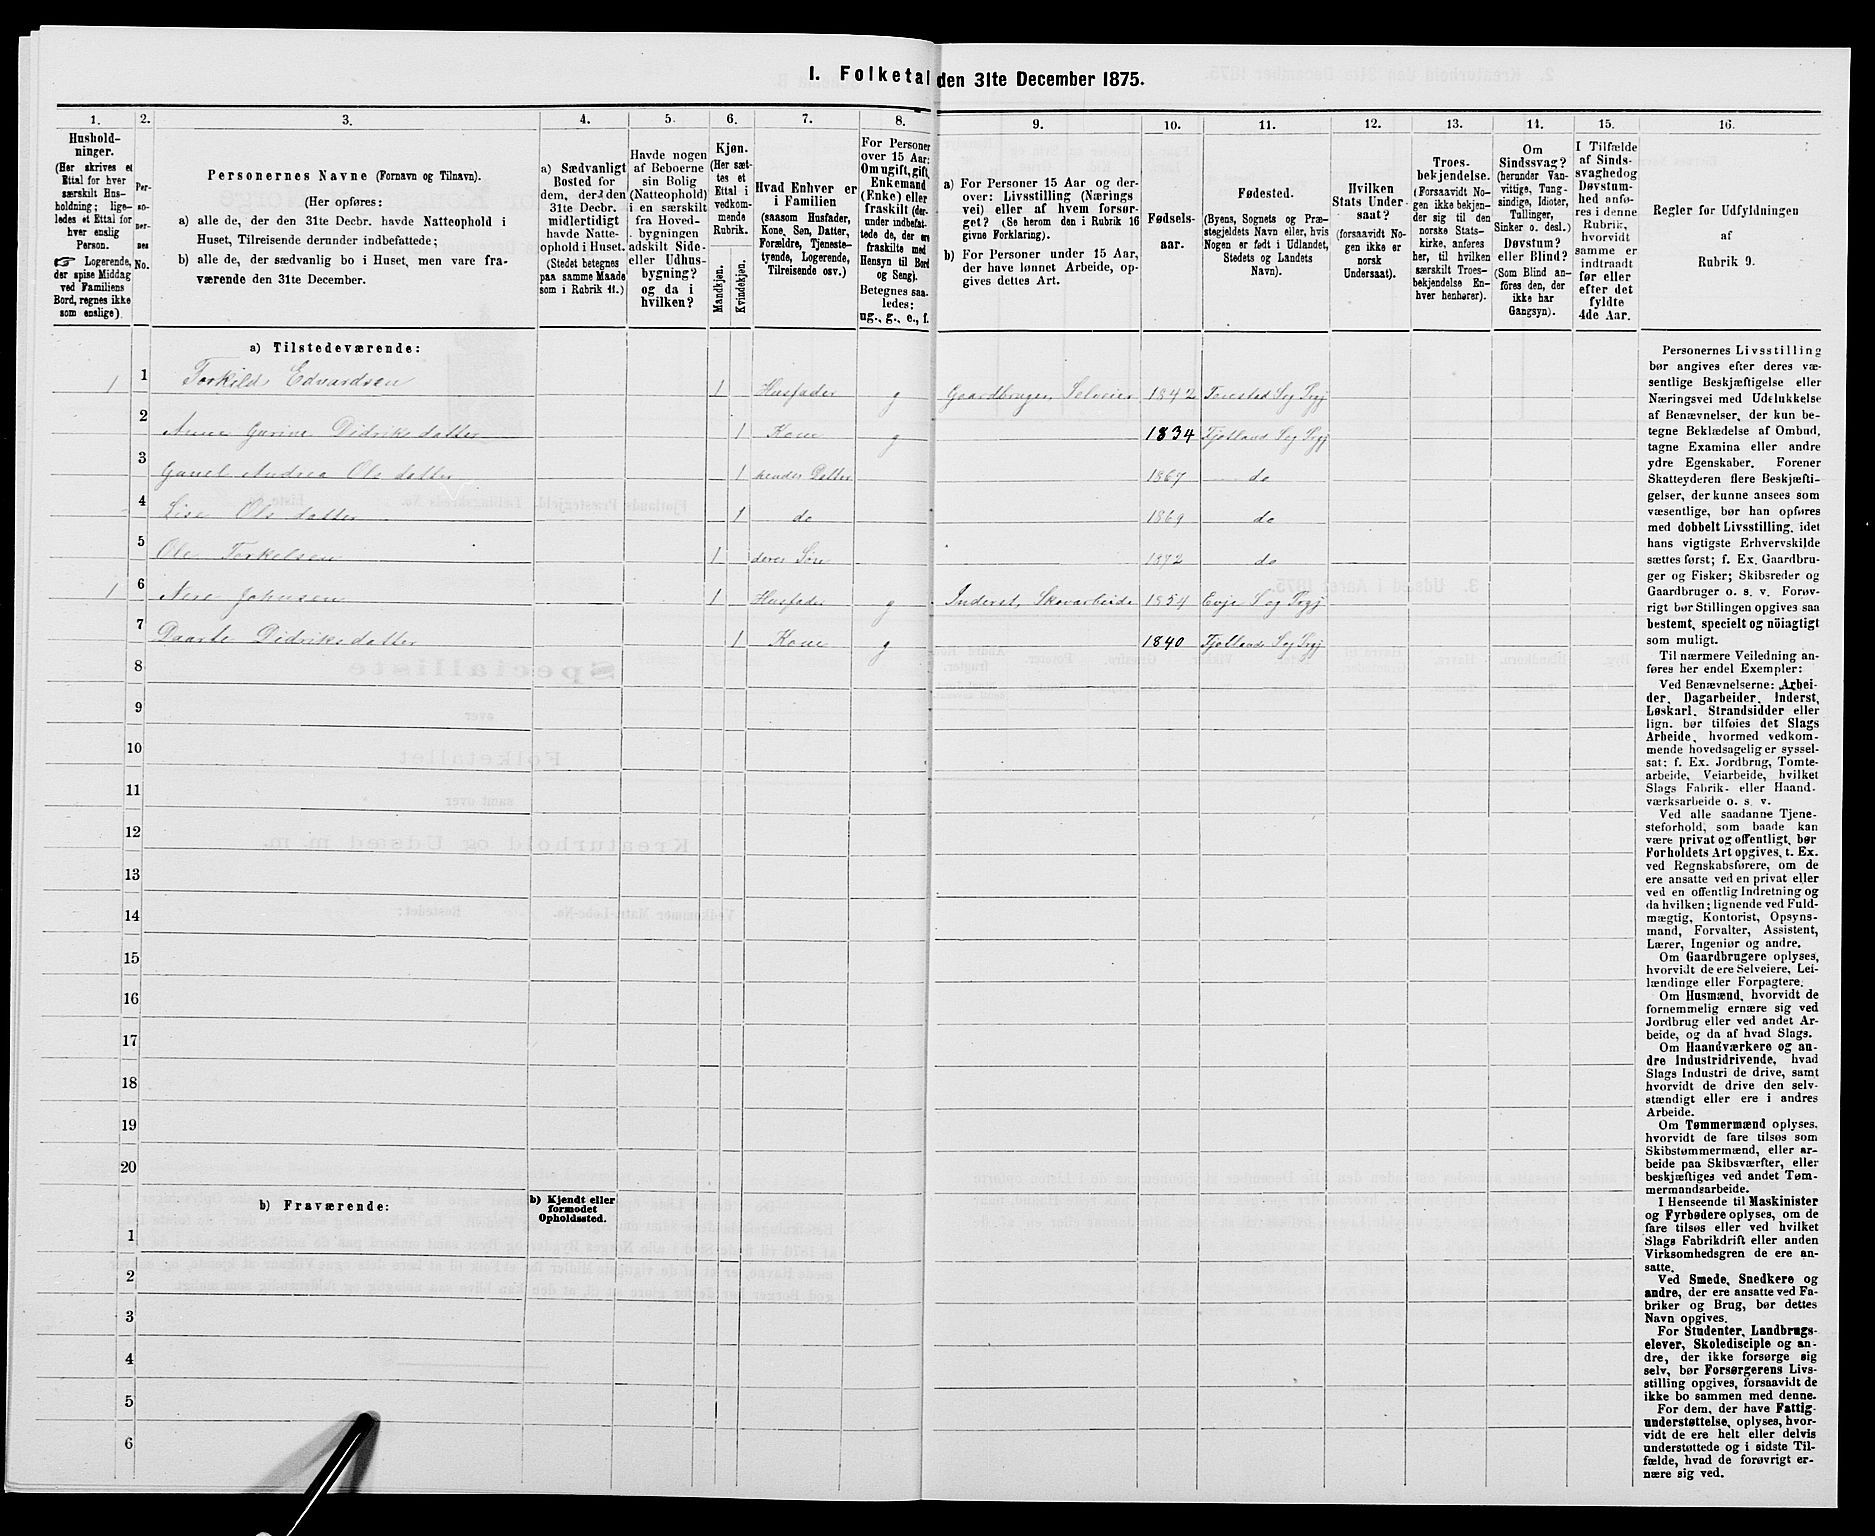 I. Folketal den 31te December 1875.
1.
Husholdninger.
(Her skrives et Ettal for hver særskilt Husholdning; ligeledes et Ettal for hver enslig Person.
☞ Logerende, der spise Middag ved Familiens Bord, regnes ikke som enslige).
2.
Personernes No.
3.
Personernes Navne (Fornavn og Tilnavn).
(Her opføres:
a) alle de, der den 31te Decbr. havde Natteophold i Huset, Tilreisende derunder indbefattede;
b) alle de, der sædvanlig bo i Huset, men vare fraværende den 31te December.
4.
a) Sædvanligt Bosted for dem, der den 31te Decbr. midlertidigt havde Natteophold i Huset.
(Stedet betegnes paa samme Maade som i Rubrik 11.)
5.
Havde nogen af Beboerne sin Bolig (Natteophold) i en særskilt fra Hovedbygningen adskilt Side- eller Udhusbygning? og da i hvilken?
6.
Kjøn.
(Her sættes et Ettal i vedkommende Rubrik.
Mandkjøn.
Kvindekjøn.
7.
Hvad Enhver er i Familien
(saasom Husfader, Kone, Søn, Datter, Forældre, Tjenestetyende, Logerende, Tilreisende osv.)
8.
For Personer over 15 Aar: Om ugift, gift, Enkemand (Enke) eller fraskilt (derunder indbefattede de, der ere fraskilte med Hensyn til Bord og Seng).
Betegnes saaledes:
ug., g., e., f.
9.
a) For Personer 15 Aar og derover: Livsstilling (Næringsvei) eller af hvem forsørget? (Se herom den i Rubrik 16 givne Forklaring).
b) For Personer under 15 Aar, der have lønnet Arbeide, opgives dettes Art.
10.
Fødselsaar.
11.
Fødested.
(Byens, Sognets og Præstegjeldets Navn eller, hvis Nogen er født i Udlandet, Stedets og Landets Navn).
12.
Hvilken Stats Undersaat?
(forsaavidt Nogen ikke er norsk Undersaat).
13.
Troesbekjendelse.
(Forsaavidt Nogen ikke bekjender sig til den norske Statskirke, anføres her, til hvilken særskilt Troesbekjendelse Enhver henhører).
14.
Om Sindssvag?
(herunder Vanvittige, Tungsindige, Idioter, Tullinger, Sinker o. desl.)
Døvstum? eller Blind?
(Som Blind anføres den, der ikke har Gangsyn).
15.
I Tilfælde af Sindssvaghed og Døvstumhed anføres i denne Rubrik, hvorvidt samme er indtraadt før eller efter det fyldte 4de Aar.
16.
Regler for Udfyldningen af Rubrik 9.
a) Tilstedeværende:
1 1 Torkild Edvardsen 1 Husfader g Gaardbruger, Selveier 1842 Sog Prgj
2 Anne Gurine Didriksdatter 1 Kone g 1834 Fjotland Sog Prgj
3 Gunil Andrea Olsdatter 1 hendes Datter 1867 do
4 Lise Olsdatter 1 do 1869 do
5 Ole Torkelsen 1 deres Søn 1872 do
1 6 Johnsen 1 Husfader g Inderst, Skovarbeide 1854 Evje S og Prgj
7 Daarte Didriksdatter 1 Kone g 1840 Fjotlands Sog Prgj
8
9
10
11
12
13
14
15
16
17
18
19
20
b) Fraværende:
b) Kjendt eller formodet Opholdssted.
1
2
3
4
5
6
Personernes Livsstilling
bør angives efter deres væ-
sentlige Beskjæftigelse eller
Næringsvei med Udelukkelse
af Benævnelser, der kun be-
tegne Beklædelse af Ombud,
tagne Examina eller andre
ydre Egenskaber. Forener
Skatteyderen flere Beskjæfti-
gelser, der kunne ansees som
væsentlige, bør han opføres
med dobbelt Livsstilling, idet
hans vigtigste Erhvervskilde
sættes først; f. Ex. Gaardbru-
ger og Fisker; Skibsreder og
Gaardbruger o. s. v. Forøv-
rigt bør Stillingen opgives saa
bestemt, specielt og nöiagtigt
som muligt.
Til nærmere Veiledning an-
føres her endel Exempler:
Ved Benævnelserne: Arbei-
der, Dagarbeider, Inderst,
Løskarl, Strandsidder eller
lign. bør tilføies det Slags
Arbeide, hvormed vedkom-
mende hovedsagelig er syssel-
sat; f. Ex. Jordbrug, Tomte-
arbeide, Veiarbeide, hvilket
Slags Fabrik- eller Haand-
værksarbeide o. s. v.
Ved alle saadanne Tjene-
steforhold, som baade kan
være privat og offentligt, bør
Forholdets Art opgives, t. Ex.
ved Regnskabsførere, om de
ere ansatte ved en privat eller
ved en offentlig Indretning og
da hvilken; lignende ved Fuld-
mægtig, Kontorist, Opsyns-
mand, Forvalter, Assistent,
Lærer, Ingeniør og andre.
Om Gaardbrugere oplyses,
hvorvidt de ere Selveiere, Lei-
lændinge eller Forpagtere.
Om Husmænd, hvorvidt de
fornemmelig ernære sig ved
Jordbrug eller ved andet Ar-
beide, og da af hvad Slags.
Om Haandværkere og an-
dre Industridrivende, hvad
Slags Industri de drive, samt
hvorvidt de drive den selv-
stændigt eller ere i andres
Arbeide.
Om Tømmermænd oplyses,
hvorvidt de fare tilsøs som
Skibstømmermænd, eller ar-
beide paa Skibsværfter, eller
beskjæftiges ved andet Tøm-
mermandsarbeide.
I Henseende til Maskinister
og Fyrbødere oplyses, om de
fare tilsøs eller ved hvilket
Slags Fabrikdrift eller anden
Virksomhedsgren de ere an-
satte.
Ved Smede, Snedkere og
andre, der ere ansatte ved Fa-
briker og Brug, bør dettes
Navn opgives.
For Studenter, Landbrugs-
elever, Skoledisciple og an-
dre, der ikke forsørge sig
selv, bør Forsørgerens Livs-
stilling opgives, forsaavidt de
ikke bo sammen med denne.
For dem, der have Fattig-
understøttelse, oplyses, hvor-
vidt de ere helt eller delvis
understøttede og i sidste Til-
fælde, hvad de forøvrigt er-
nære sig ved.